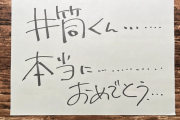 井筒くん………
本当に…………
おめでとう…